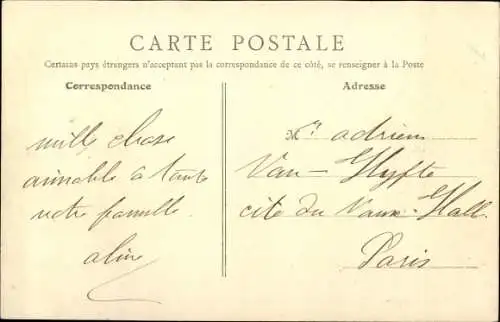 CARTE POSTALE
Certains pays étrangers n'acceptant pas la correspondance de ce côté, se renseigner à la Poste
Correspondance
Adresse
mille chose
aimable a toute
votre famille
aline
Mr adrien
Van-Hyfte
cite du Vaux-Hall
Paris